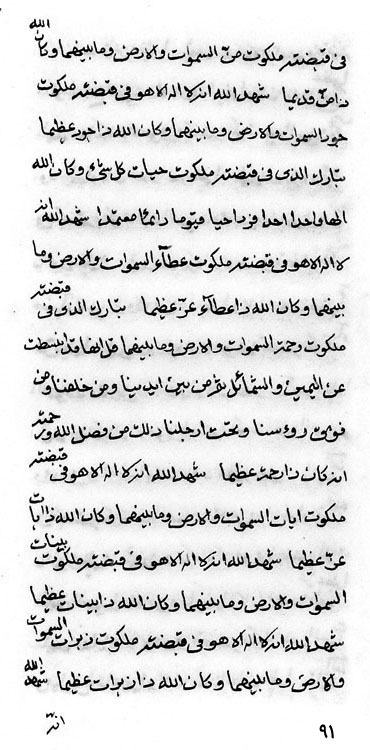 الله
فی قبضته ملکوت منّ السموات والارض وما بینهما وکان
ذا منّ قدیما شهد الله انه لا اله الا هو فی قبضته ملکوت
جود السموات والارض وما بینهما وکان الله ذا جود عظیما
تبارک الذی فی قبضته ملکوت حیات کل شیء وکان الله
الها واحدا احدا فردا حیا قیوما دائما معتمدا شهد الله انه
لا اله الا هو فی قبضته ملکوت عطاء السموات والارض وما
بینهما وکان الله ذا عطاء عز عظیما تبارک الذی فی قبضته
ملکوت رحمة السموات والارض وما بینهما قل انها قد انبسطت
عن الیمین والشمائل ثم من بین ایدینا ومن خلفنا ومن
فوق روءسنا وتحت ارجلنا ذلک من فضل الله ورحمته
انه کان ذا رحمة عظیما شهد الله انه لا اله الا هو فی قبضته
ملکوت ایات السموات والارض وما بینهما وکان الله ذا ایات
عز عظیما شهد الله انه لا اله الا هو فی قبضته ملکوت بینات
السموات والارض وما بینهما وکان الله ذا بینات عظیما
شهد الله انه لا اله الا هو فی قبضته ملکوت زبرات السموات
والارض وما بینهما وکان الله ذا زبرات عظیما شهد الله
انه
٩١